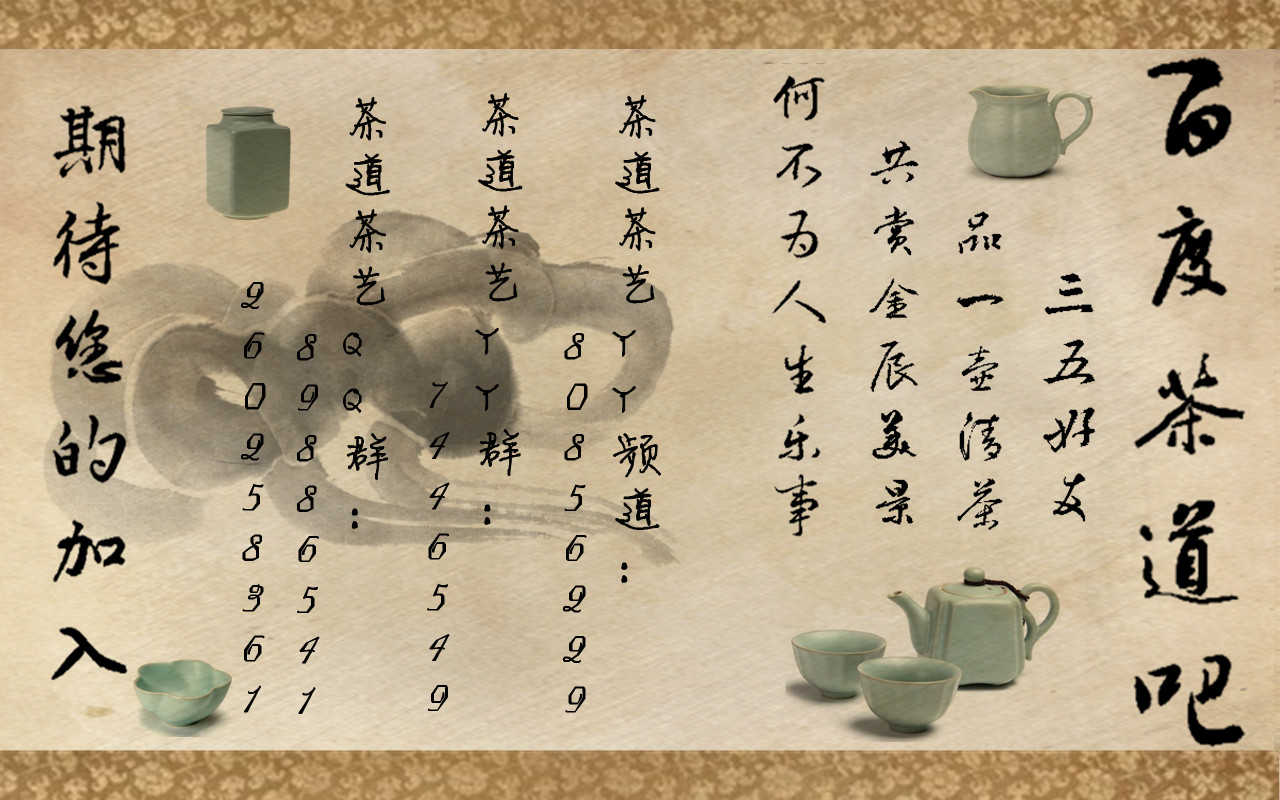 百度茶道吧
三五好友
品一壶清茶
共赏金辰美景
何不为人生乐事
茶道茶艺YY频道：
80856229
茶道茶艺YY群：
7446549
茶道茶艺QQ群：
89886541
260258361
期待您的加入